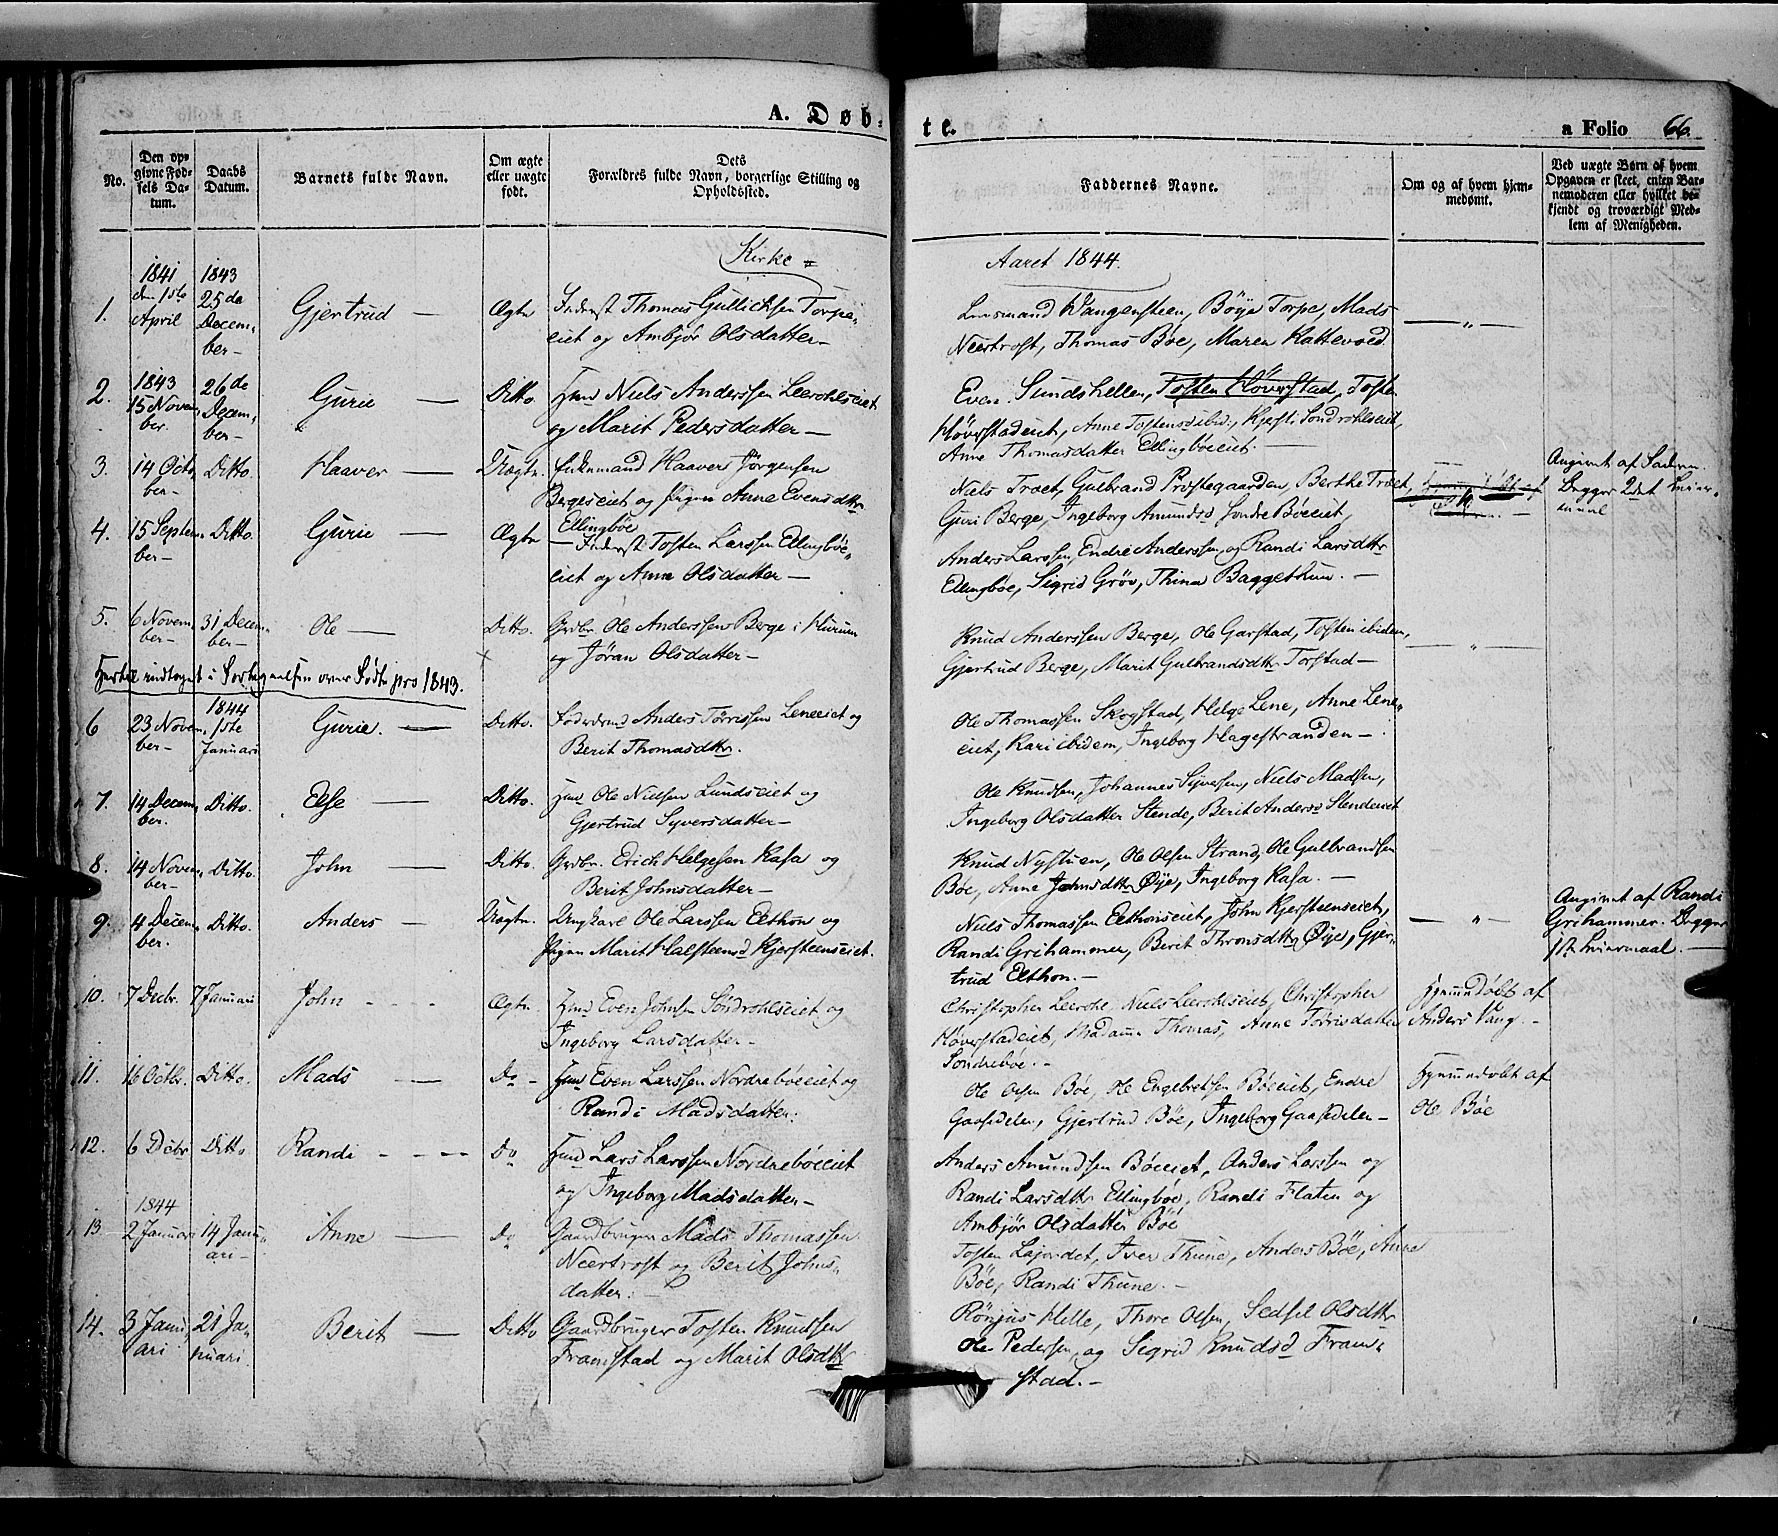 A. Døb-
te.
a Folio 66.
No.
Den op-
givne Fød-
sels Da-
tum.
Daabs
Datum.
Barnets fulde Navn.
Om ægte
eller uægte
født.
Dets
Forældres fulde Navn, borgerlige Stilling og
Opholdssted.
Faddernes Navne.
Om og af hvem hjem-
medøbt.
Ved uægte Børn af hvem
Opgaven er skeet, enten Bar-
nemoderen eller hvilket be-
kjendt og troværdigt Med-
lem af Menigheden.
Kirke =
Aaret 1844.
1.
1841
den 1ste
April
1843
25de
Decem-
ber -
Gjertrud -
Ægte
Inderst Thomas Gullichsen Torpe-
eiet og Ambjør Olsdatter -
Lensmand Wangensteen, Böye Torpe, Mads
Neertrost, Thomas Böe, Maren Kattevold
- " -
2.
1843
15 Novem-
ber.
26de
Decem-
ber -
Gurie -
Ditto
Huus Niels Anderssen Leerohlseiet
og Marit Pedersdatter -
Even Sundshellen, Tosten Höverstad, Tosten
Höverstadeiet, Anne Tostensd ibid., Kjersti Söndrohlseiet,
Anne Thomasdatter Ellingböeeiet. -
3.
14 Octo-
ber -
Ditto
Haaver -
Uægte.
Enkemand Haaver Jörgensen
Bergeseiet og Pigen Anne Evensdtr
Ellingböe
Niels Troet, Gulbrand Prostegaarden, Berthe Troet,
Guri Berge, Ingeborg Amundsd Söndre Böeeiet,
Angivet af Faderen.
Begges 2det Leier-
maal
4.
15 Septem-
ber -
Ditto.
Gurie -
Ægte
Inderst Tosten Larssen Ellingböe-
eiet og Anne Olsdatter -
Anders Larssen, Endre Anderssen, og Randi Larsdtr
Ellingböe, Sigrid Gröv, Thina Baggethun. -
5.
6 Novem-
ber -
31 Decem-
ber -
Ole -
Ditto.
Grdbr. Ole Anderssen Berge i Hurum
og Jøran Olsdatter -
Knud Anderssen Berge, Ole Garstad, Tosten ibidem,
Gjertrud Berge, Marit Gulbrandsdtr Torstad -
- " -
Hertil indtaget i Fortegnelsen over Födte pro 1843.
6
23 Novem-
ber -
1844
1ste
Januari
Gurie. -
Ditto.
Anders Törrissen Leneeiet og
Berit Thomasdtr.
Ole Thomassen Skogstad, Helge Lene, Anne Lene-
eiet, Kari ibidem, Ingeborg Hagestranden -
7.
14 Decem-
ber.
Ditto.
Else -
Ditto.
Huus Ole Nielsen Lundseiet og
Gjertrud Syversdatter -
Ole Knudsen, Johannes Syversen, Niels Madsen,
Ingeborg Olsdatter Stende, Berit Andersd Stendeeiet
8.
14 Novem-
ber -
Ditto.
John -
Ditto.
Grdbr. Erich Helgesen Kasa og
Berit Johnsdatter -
Knud Nystuen, Ole Olsen Strand, Ole Gulbrandsen
Böe, Anne Johnsdtr Øye, Ingeborg Kasa. -
9.
4 Decem-
ber.
Ditto.
Anders -
Uægte.
Ungkarl Ole Larssen Elthon og
Pigen Marit Halsteensd Kjersteenseiet.
Niels Thomassen Elthonseiet, John Kjersteenseiet,
Randi Grihammer, Berit Thronsdtr Øye, Gjer-
trud Elthon. -
- " -
Angivet af Randi
Grihammer. Begges
1ste Leiermaal. -
10.
7 Decbr.
7 Januari
John - - -
Ægte.
Huus Even Johnsen Söndrohlseiet og
Ingeborg Larsdatter -
Christopher Leerohl, Niels Leerohlseiet, Christopher
Höverstadeiet, Madame Thomas, Anne Törrisdatter
Söndreböe. -
Hjemmedöbt af
Anders Vang. -
11.
16 Octbr.
Ditto.
Mads -
Do -
Huus Even Larssen Nordreböeeiet og
Randi Madsdatter.
Ole Olsen Böe, Ole Engebretsen Böeeiet, Endre
Gaasedelen, Gjertrud Böe, Ingeborg Gaasedelen -
Hjemmedöbt af
Ole Böe
12.
6 Decbr
Ditto
Randi - - -
Do
Huus Lars Larssen Nordreböeeiet
og Ingeborg Madsdatter -
Anders Amundsen Böeeiet, Anders Larssen og
Randi Larsdtr Ellingböe, Randi Flaten og
Ambjör Olsdatter Böe
13
1844
2 Januari
14 Janu-
ari -
Anne -
Do
Gaardbruger Mads Thomassen
Neertrost og Berit Johns-
datter. -
Tosten Lajordet, Iver Thune, Anders Böe, Anne
Böe, Randi Thune. -
14.
3 Janu-
ari
21 Ja-
nuari
Berit -
Ditto
Gaardbruger Tosten Knudsen
Framstad og Marit Olsdtr
Rönjus Helle, Thore Olsen, Sedsel Olsdtr
Ole Pedersen, og Sigrid Knudsd Fram-
stad. -